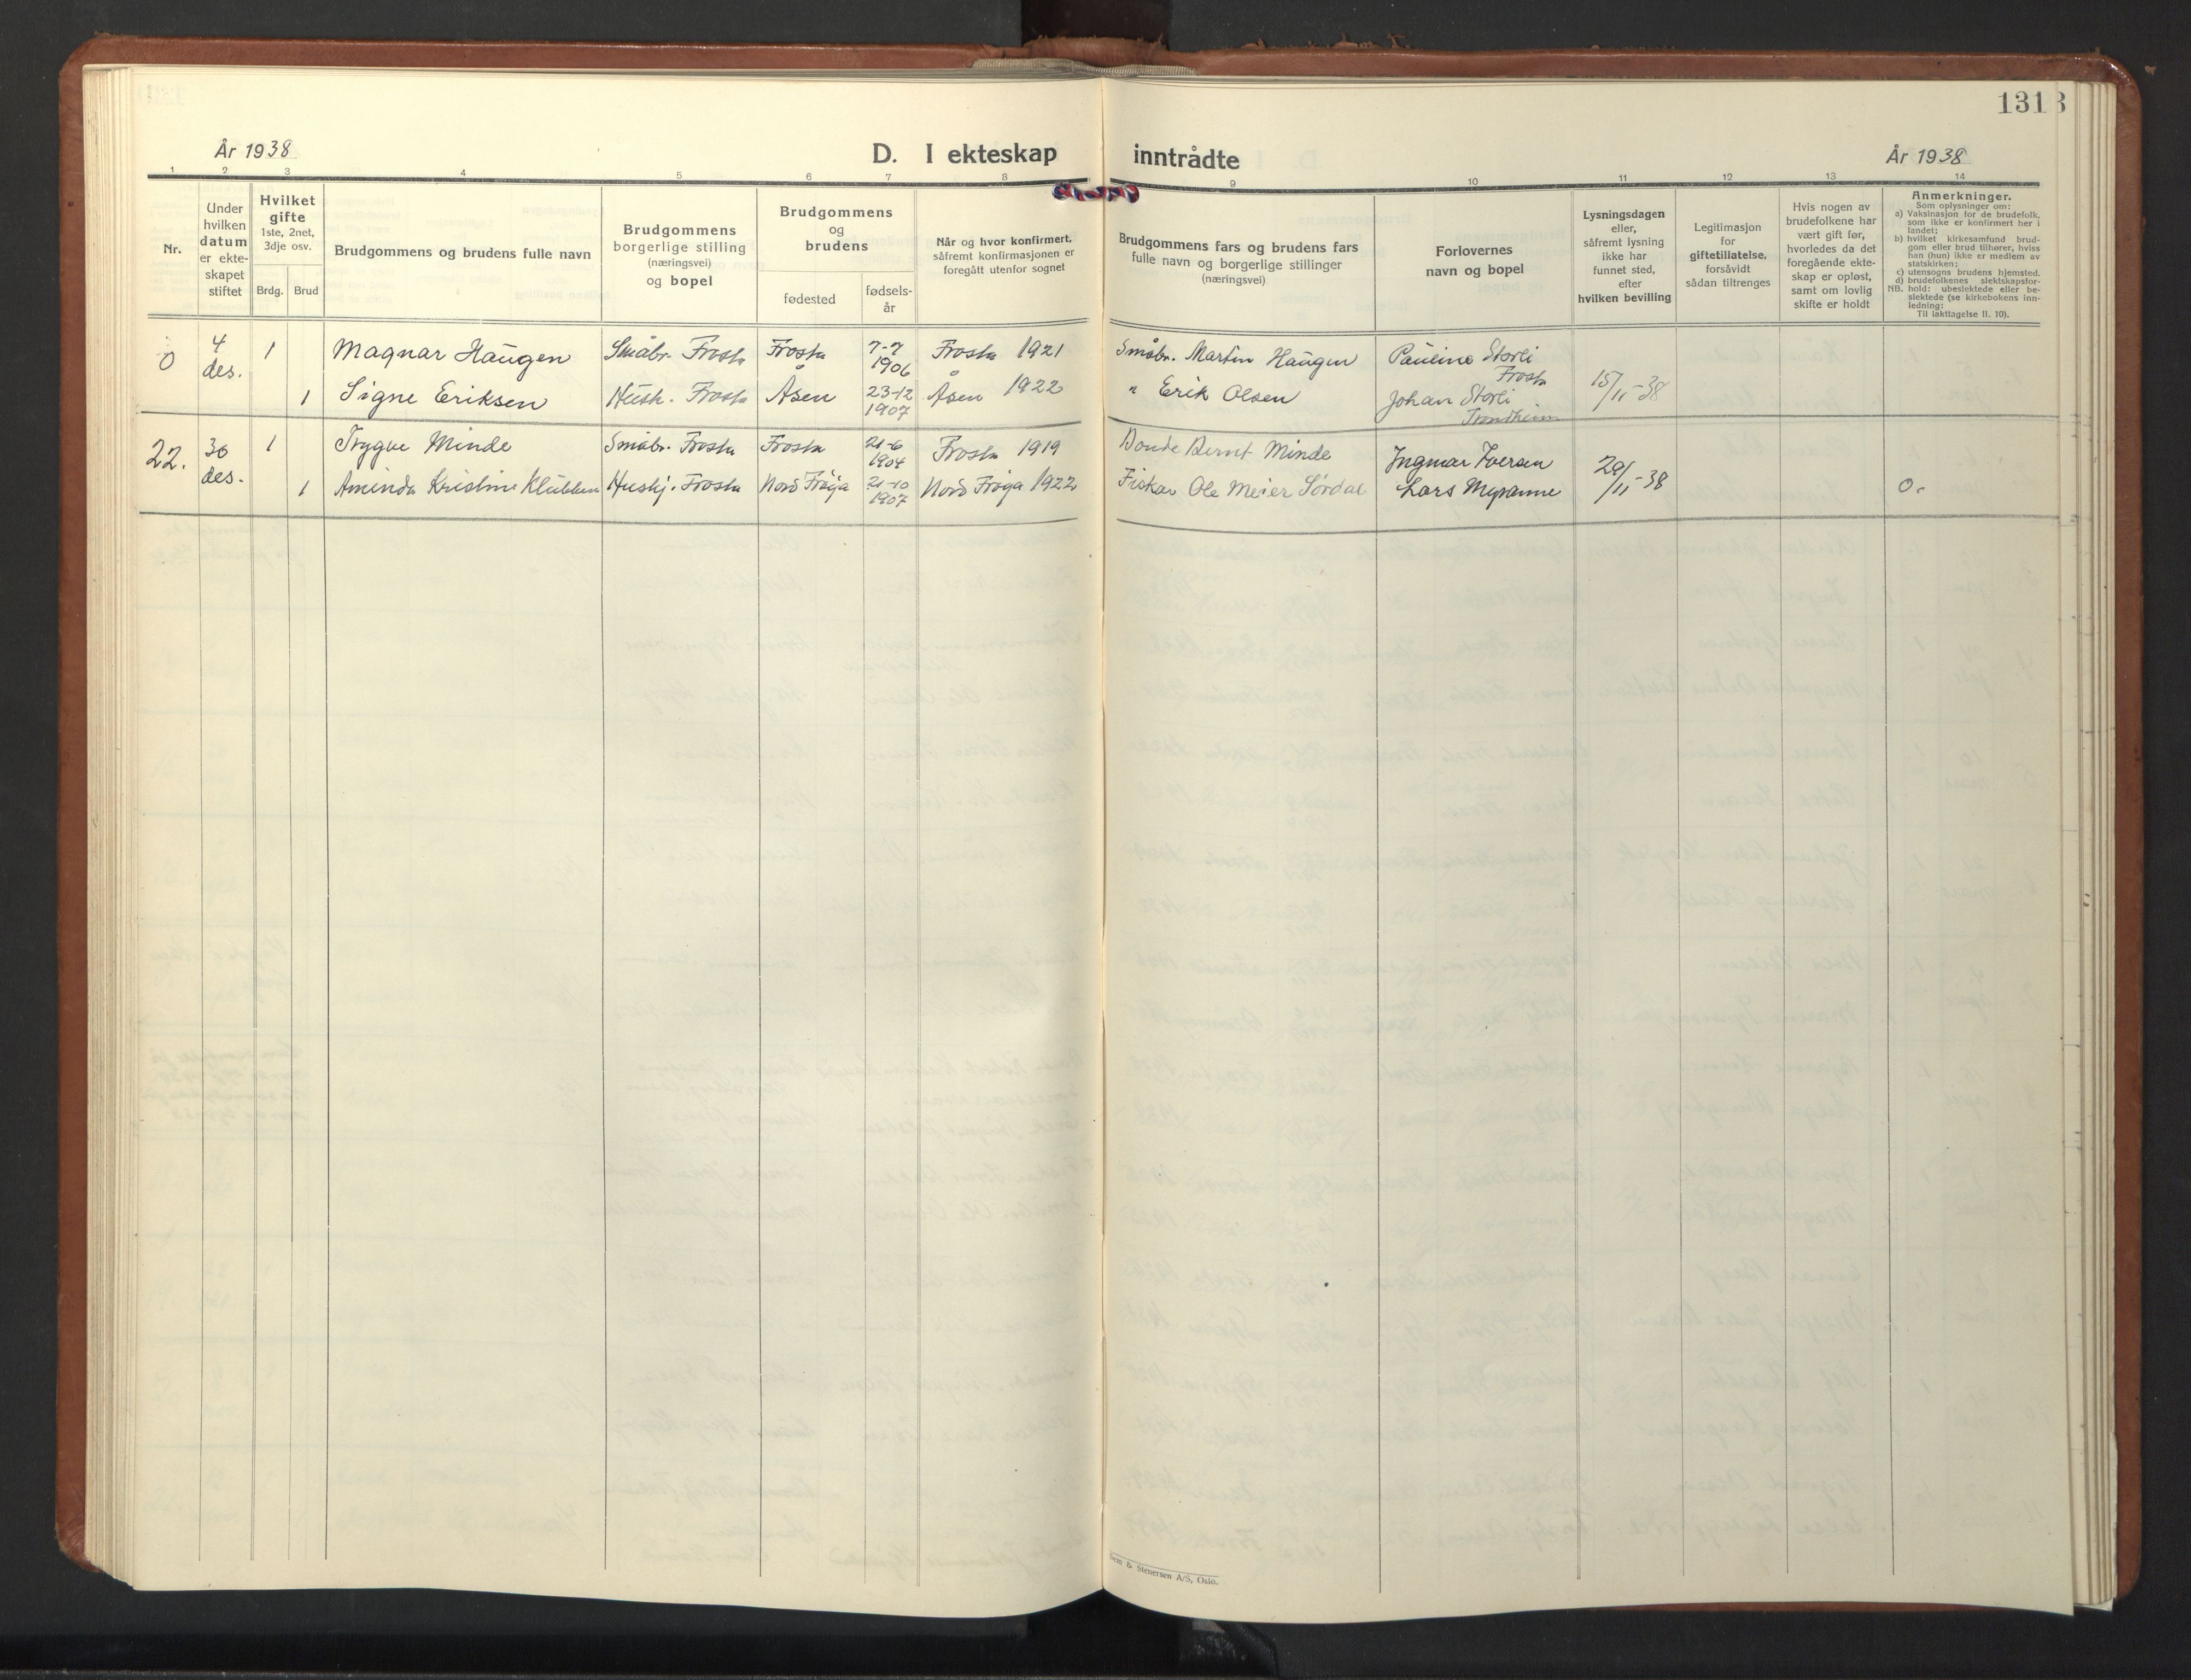 131
År 1938
D. I ekteskap inntrådte
År 1938
1 2 3 4 5 6 7 8 9 10 11 12 13 14
Nr.
Under
hvilken
datum
er ekte-
skapet
stiftet
Hvilket
gifte
1ste, 2net,
3dje osv.
Brdg. Brud
Brudgommens og brudens fulle navn
Brudgommens
borgerlige stilling
(næringsvei)
og bopel
Brudgommens
og
brudens
fødested
fødsels-
år
Når og hvor konfirmert,
såfremt konfirmasjonen er
foregått utenfor sognet
Brudgommens fars og brudens fars
fulle navn og borgerlige stillinger
(næringsvei)
Forlovernes
navn og bopel
Lysningsdagen
eller,
såfremt lysning
ikke har
funnet sted,
efter
hvilken bevilling
Legitimasjon
for
giftetillatelse,
forsåvidt
sådan tiltrenges
Hvis nogen av
brudefolkene har
vært gift før,
hvorledes da det
foregående ekte-
skap er opløst,
samt om lovlig
skifte er holdt
Anmerkninger.
Som oplysninger om:
a) Vaksinasjon for de brudefolk,
som ikke er konfirmert her i
landet;
b) hvilket kirkesamfund brud-
gom eller brud tilhører, hviss
han (hun) ikke er medlem av
statskirken;
c) utensogns brudens hjemsted.
d) brudefolkenes slektskapsfor-
NB. hold: ubeslektede eller be-
slektede (se kirkebokens inn-
ledning:
Til iakttagelse II. 10).
0 4
des.
1 Magnar Haugen Småbr. Frosta Frosta 7-7
1906
Frosta 1921 Småbr. Martin Haugen Pauline Storli
Frosta
1 Signe Eriksen Hush. Frosta Åsen 23-12
1907
Åsen 1922 " Erik Olsen Johan Storli
Trondheim
15/11-38
22. 30
des.
1 Trygve Minde Småbr. Frosta Frosta 21-6
1904
Frosta 1919 Bonde Bernt Minde Ingmar Iversen
1 Aminda Kristine Klubben Hushj. Frosta Nord Frøya 21-10
1907
Nord Frøya 1922 Fisker Ole Meier Sørdal Lars Myranne
29/11-38 0.
& Stenersen A/S, Oslo.